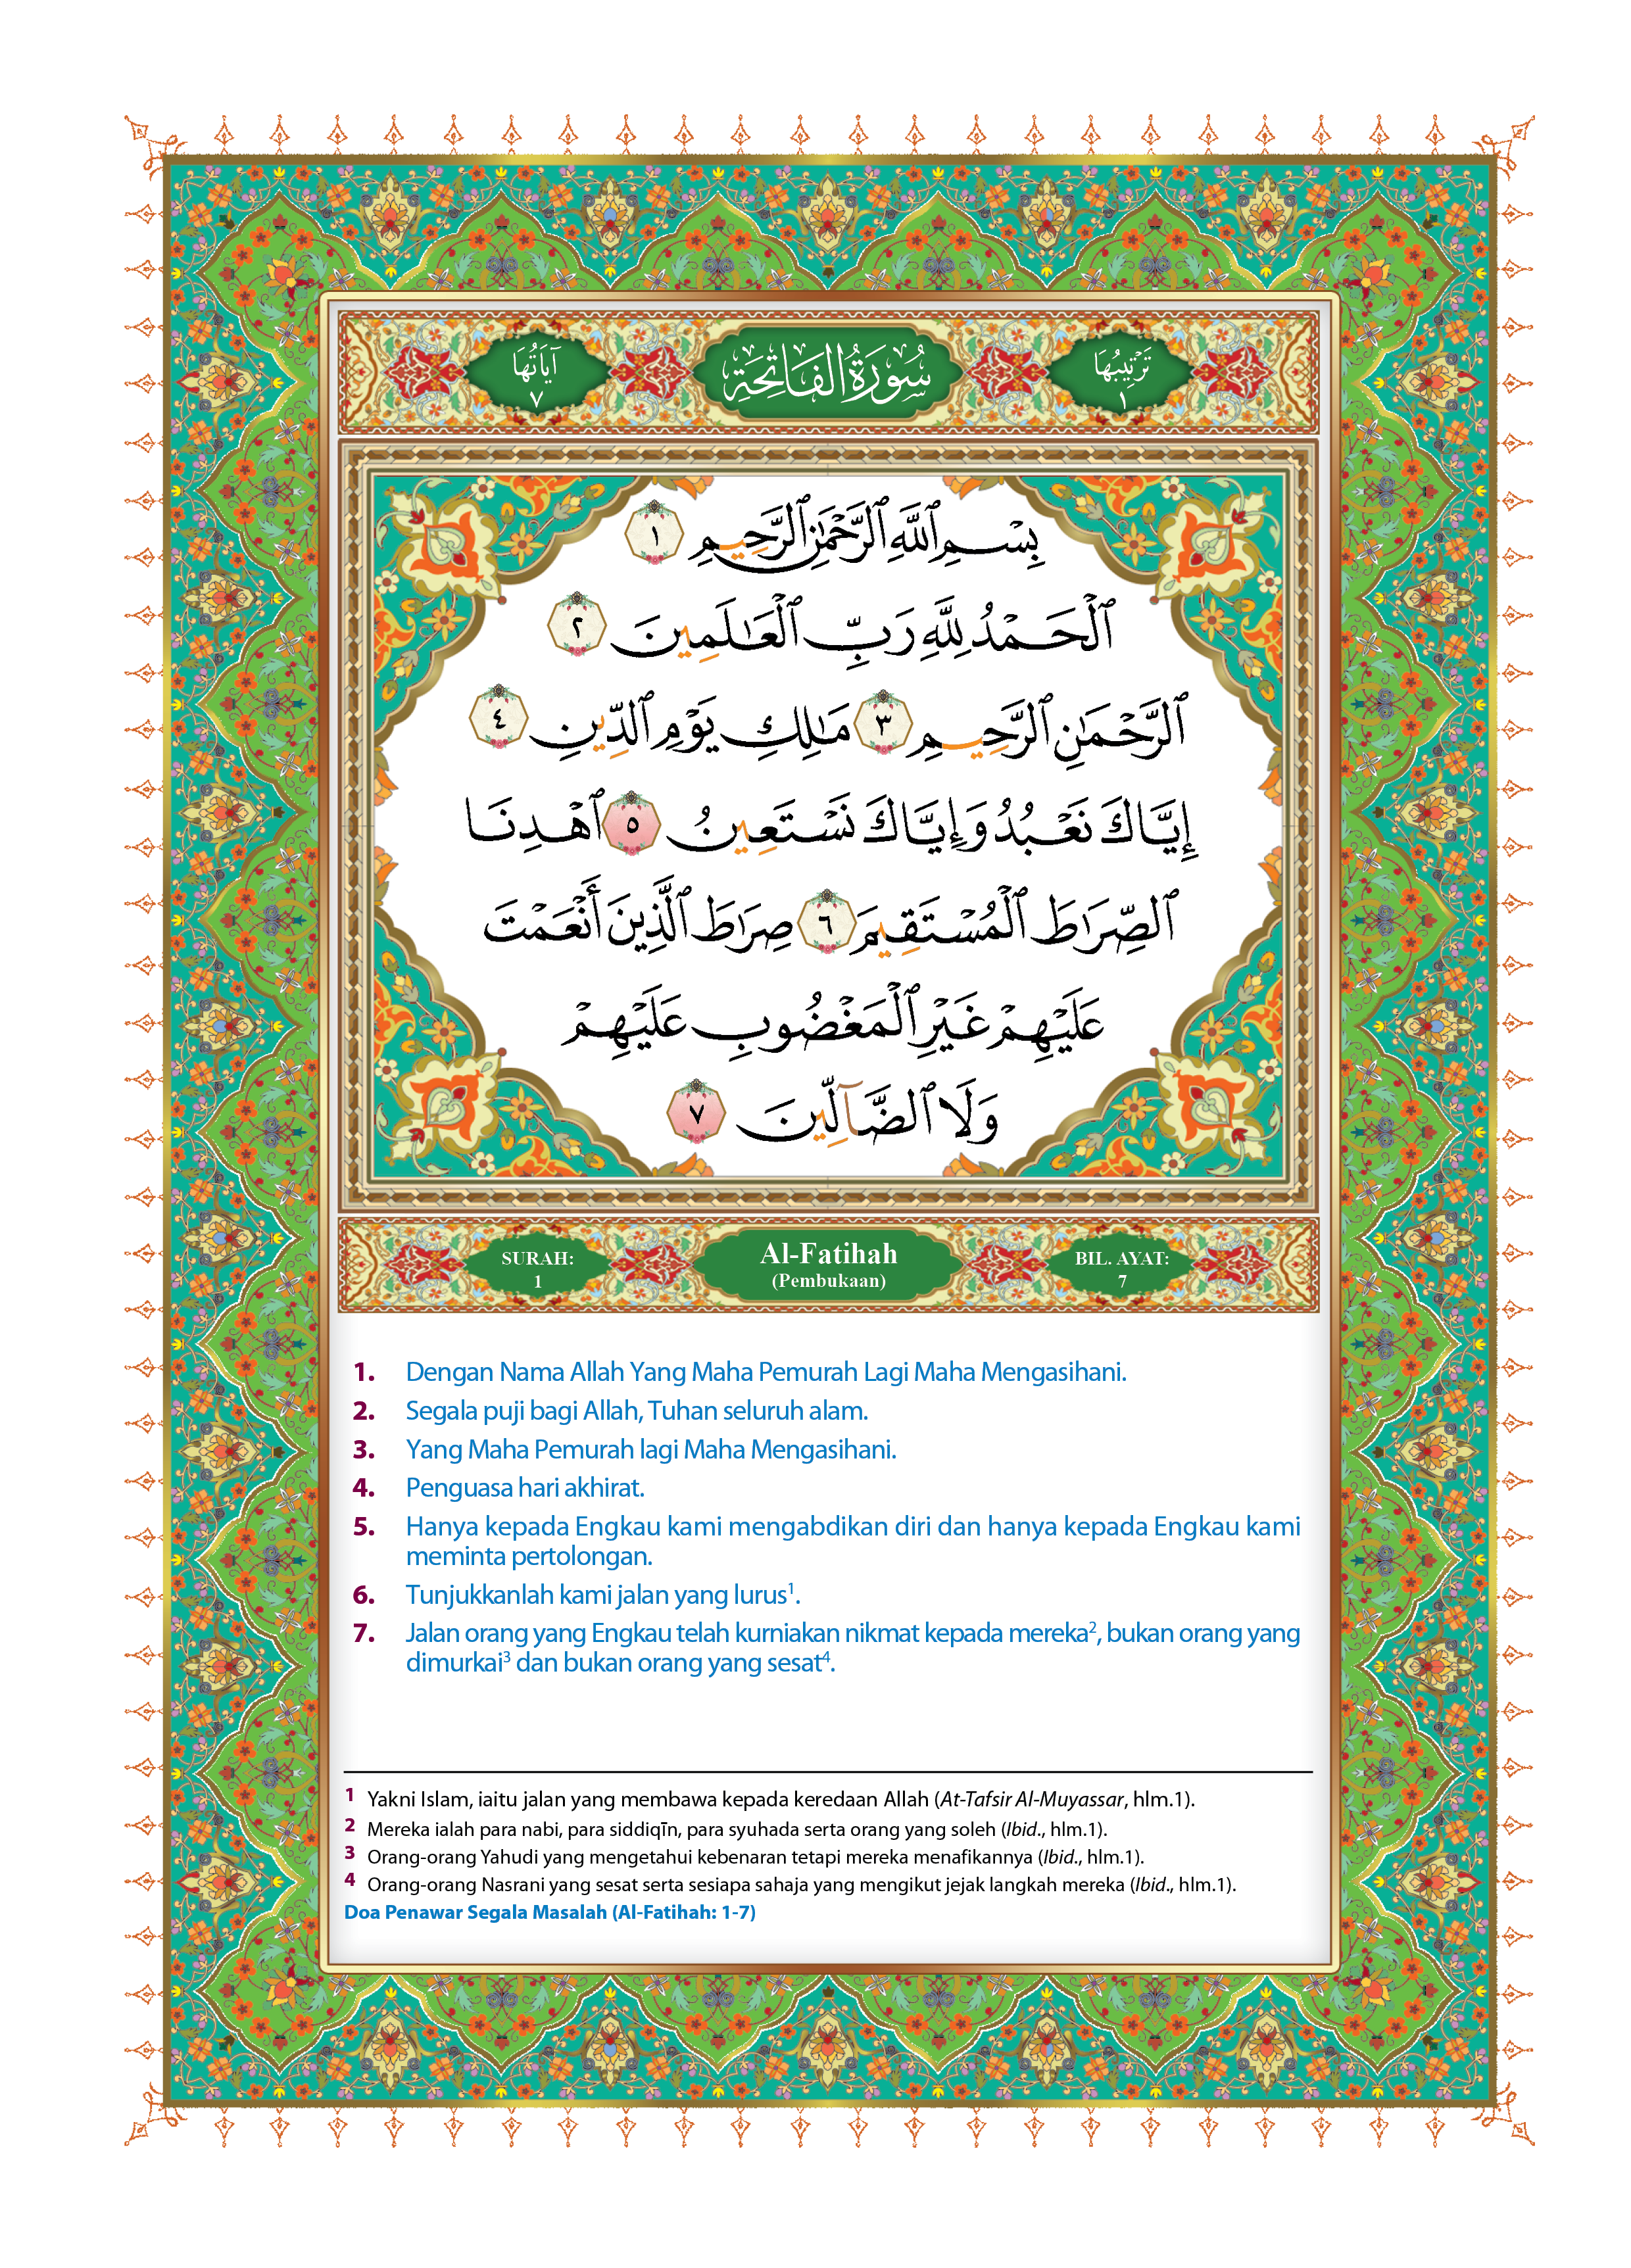 تَرْتِيبُهَا ١ سُورَةُ الْفَاتِحَةِ آيَاتُهَا ٧
بِسْمِ ٱللَّهِ ٱلرَّحْمَٰنِ ٱلرَّحِيمِ ١
ٱلْحَمْدُ لِلَّهِ رَبِّ ٱلْعَٰلَمِينَ ٢
ٱلرَّحْمَٰنِ ٱلرَّحِيمِ ٣ مَٰلِكِ يَوْمِ ٱلدِّينِ ٤
إِيَّاكَ نَعْبُدُ وَإِيَّاكَ نَسْتَعِينُ ٥ ٱهْدِنَا
ٱلصِّرَٰطَ ٱلْمُسْتَقِيمَ ٦ صِرَٰطَ ٱلَّذِينَ أَنْعَمْتَ
عَلَيْهِمْ غَيْرِ ٱلْمَغْضُوبِ عَلَيْهِمْ
وَلَا ٱلضَّآلِّينَ ٧
SURAH: 1 Al-Fatihah (Pembukaan) BIL. AYAT: 7
1. Dengan Nama Allah Yang Maha Pemurah Lagi Maha Mengasihani.
2. Segala puji bagi Allah, Tuhan seluruh alam.
3. Yang Maha Pemurah lagi Maha Mengasihani.
4. Penguasa hari akhirat.
5. Hanya kepada Engkau kami mengabdikan diri dan hanya kepada Engkau kami
meminta pertolongan.
6. Tunjukkanlah kami jalan yang lurus¹.
7. Jalan orang yang Engkau telah kurniakan nikmat kepada mereka², bukan orang yang
dimurkai³ dan bukan orang yang sesat⁴.
1 Yakni Islam, iaitu jalan yang membawa kepada keredaan Allah (At-Tafsir Al-Muyassar, hlm.1).
2 Mereka ialah para nabi, para siddiqīn, para syuhada serta orang yang soleh (Ibid., hlm.1).
3 Orang-orang Yahudi yang mengetahui kebenaran tetapi mereka menafikannya (Ibid., hlm.1).
4 Orang-orang Nasrani yang sesat serta sesiapa sahaja yang mengikut jejak langkah mereka (Ibid., hlm.1).
Doa Penawar Segala Masalah (Al-Fatihah: 1-7)